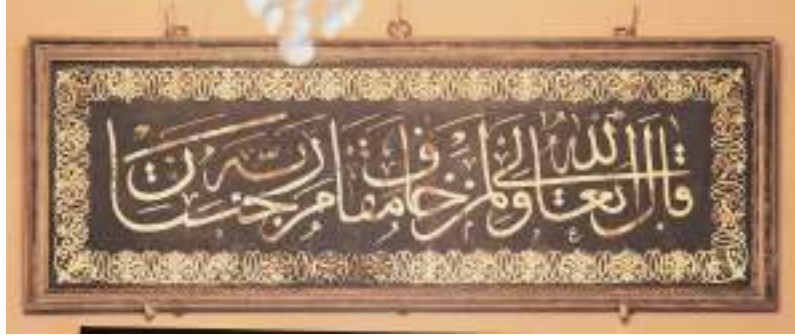 قال الله تعالى ولمن خاف مقام ربه جنتان